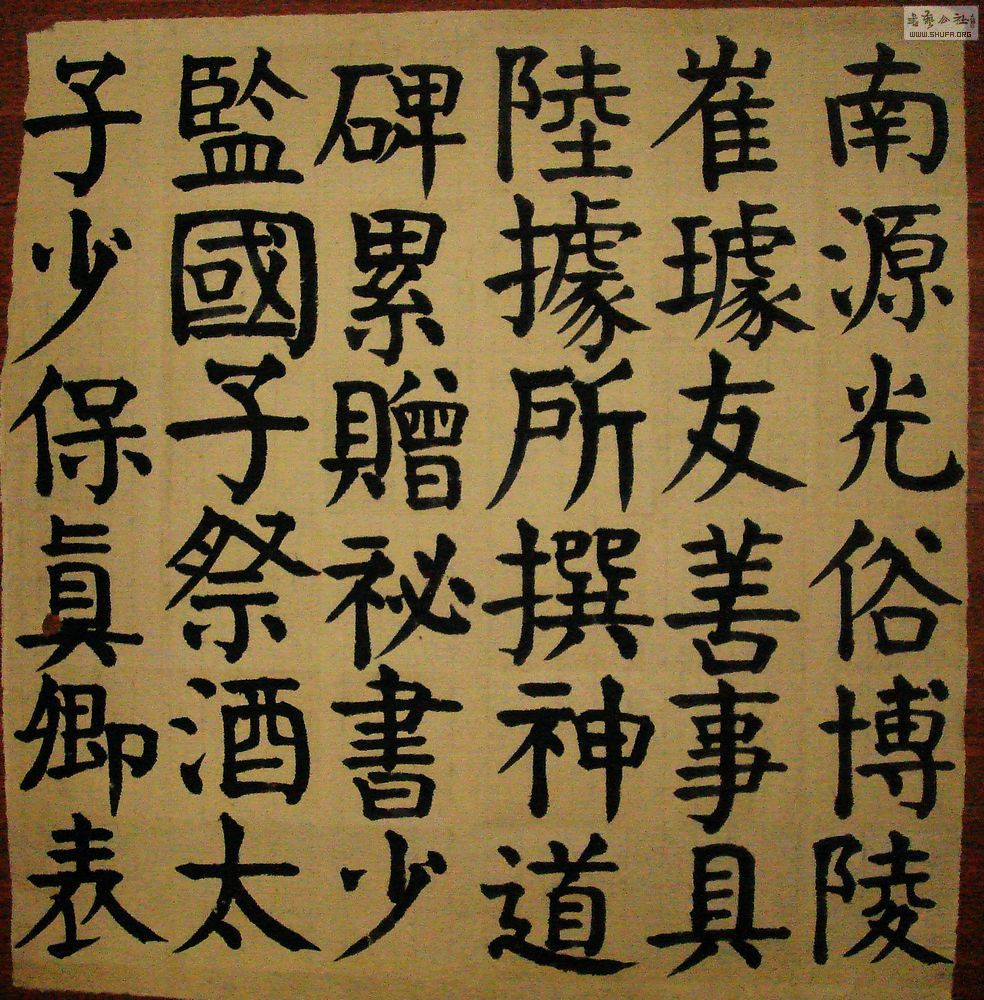 南源光俗博陵
崔璩友善事具
陸據所撰神道
碑累贈祕書少
監國子祭酒太
子少保真卿表
书艺公社
WWW.SHUFA.ORG